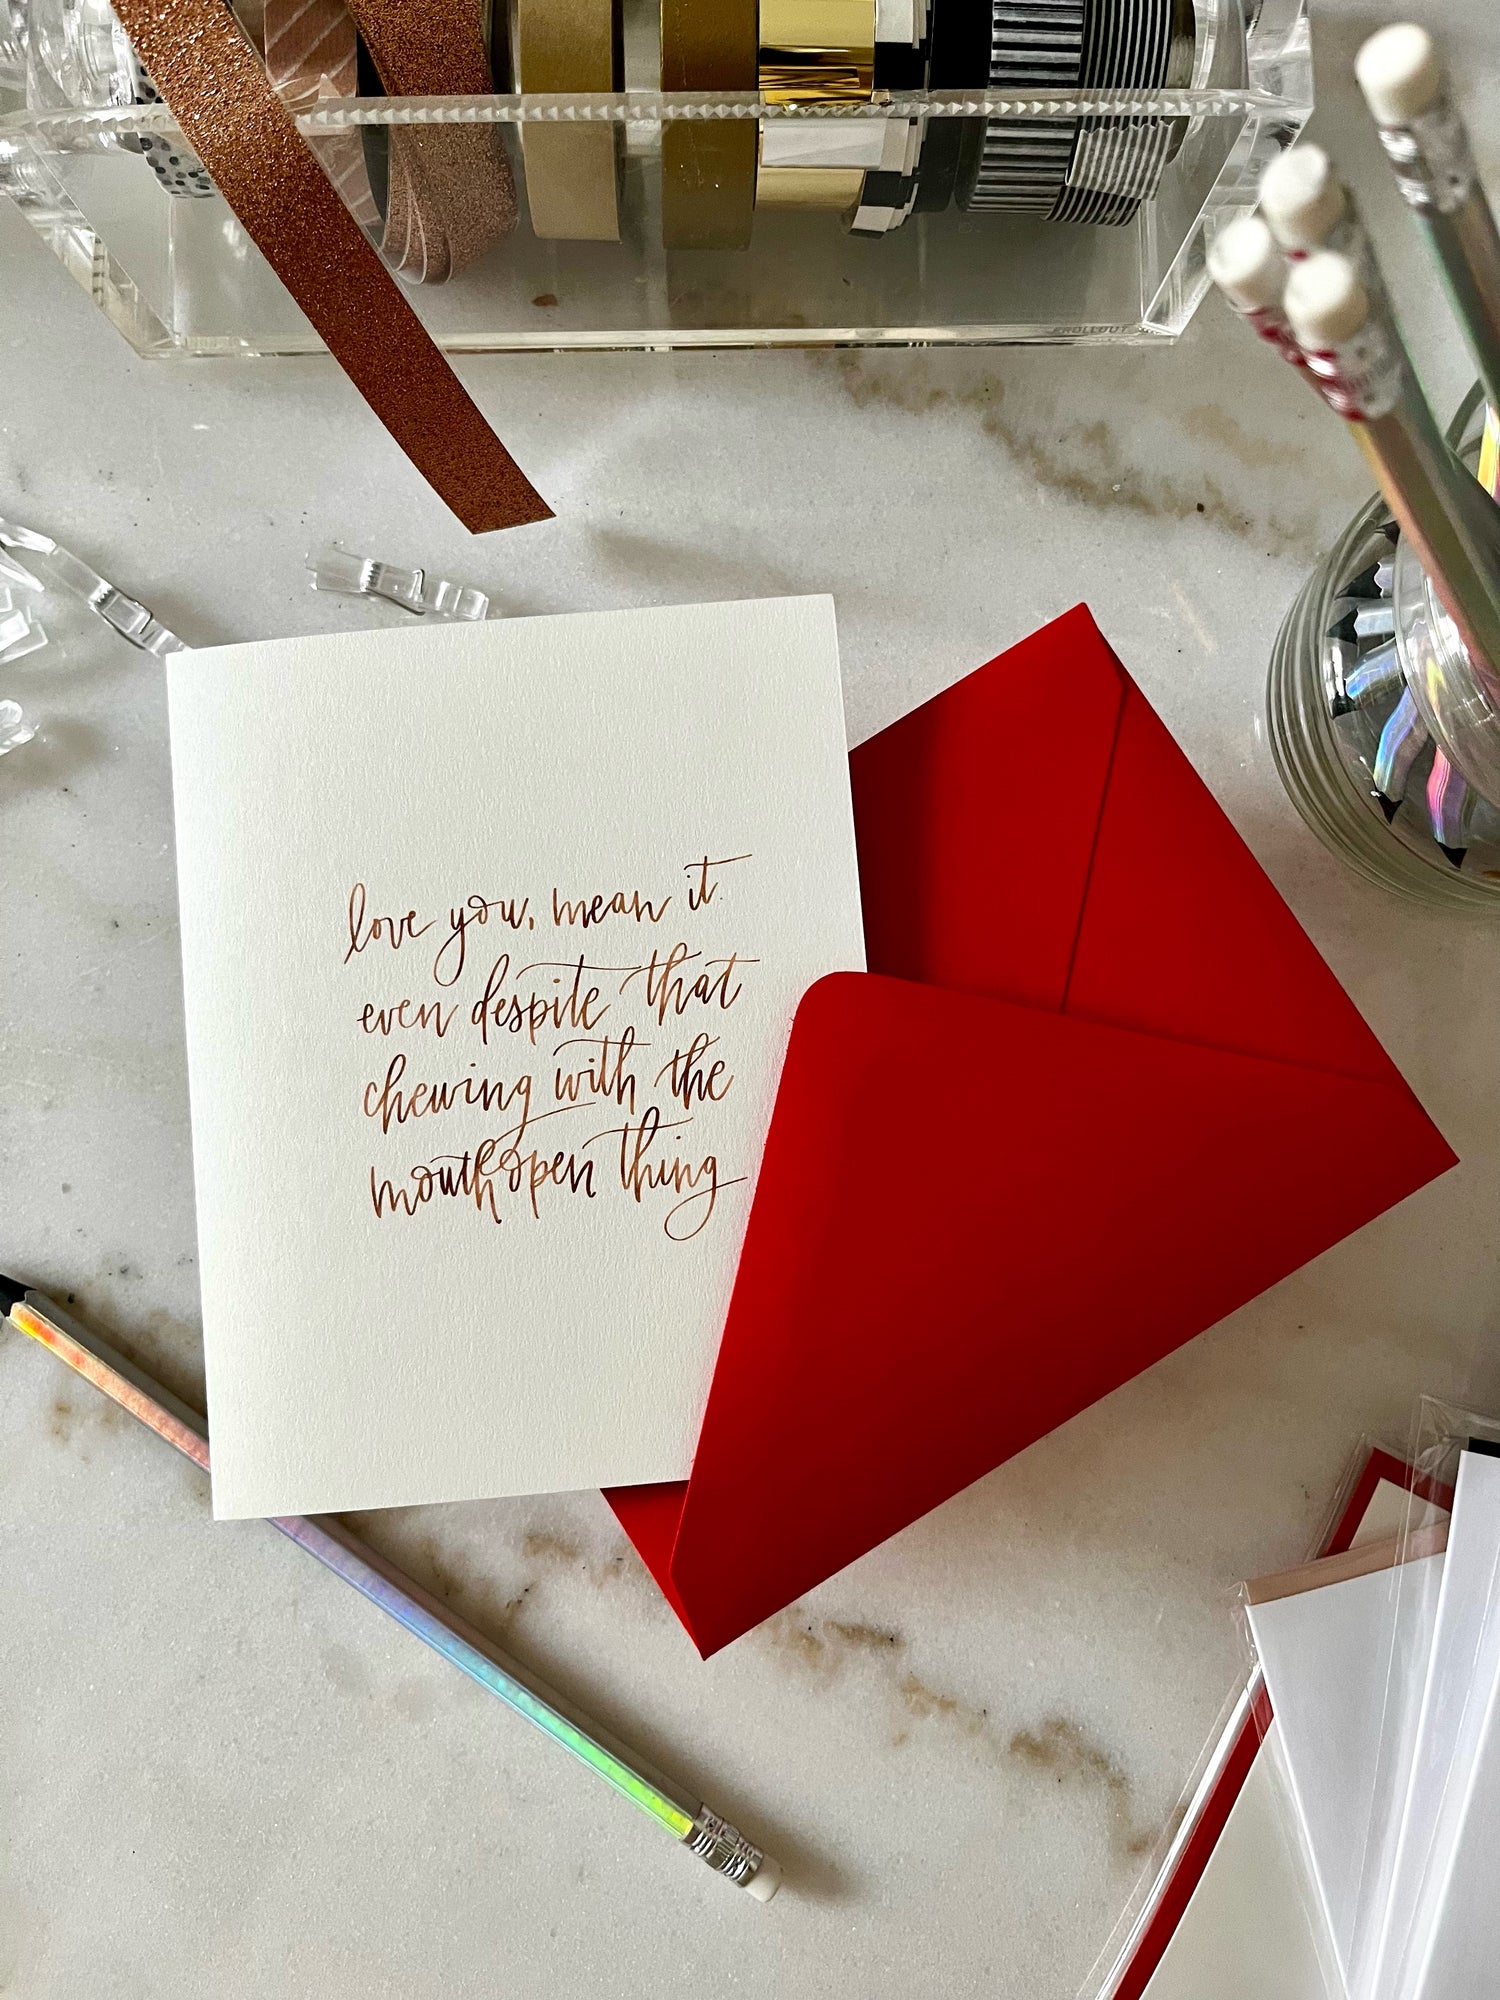 love you, mean it.
even despite that
chewing with the
mouth open thing